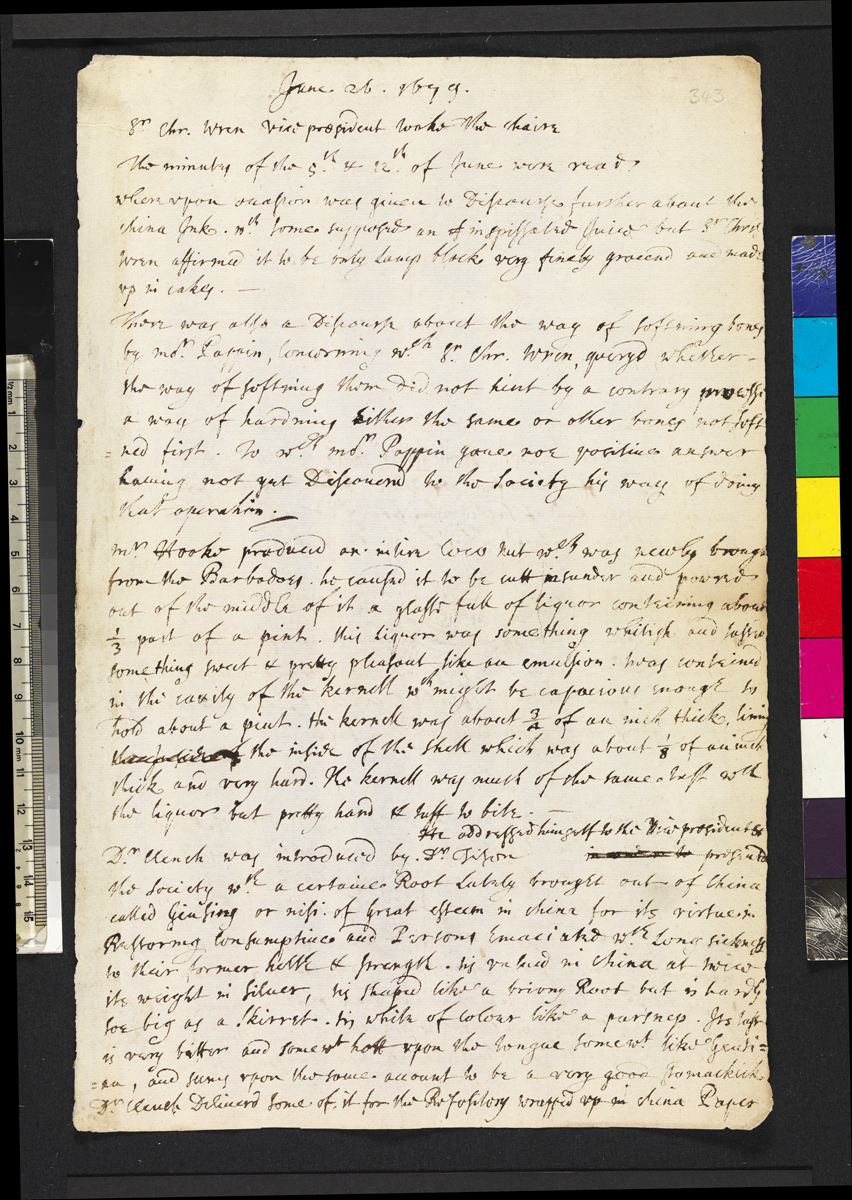 343
June 26. 1679.
Sr Chr. Wren vice president tooke the chaire
The minutes of the 5th & 12th of June were read
whereupon occasion was given to Discourse further about the
china Ink. wch some supposed an inspissated Juice but Sr Chris
Wren affirmed it to be only Lamp black very finely ground and made
up in cakes. —
There was also a Discourse about the way of softning bones
by monr Pappin, Concerning wch Sr Chr. Wren queryd whether
the way of softning them did not hint by a contrary processe
a way of hardning either the same or other bones not soft
=ned first. To wch monr Pappin gave noe positive answer
having not yet Discoverd to the Society his way of doing
that operation.
mr Hooke produced an intire Coco Nut wch was newly brough
from the Barbados. he caused it to be cutt insunder and powred
out of the middle of it a glasse full of liquor containing about
1/3 part of a pint. this liquor was something whitish and tasted
something sweet & pretty pleasant like an emulsion. twas conteined
in the cavity of the kernell wch might be capacious enough to
hold about a pint. the kernell was about 3/4 of an inch thick, lining
the inside of the shell which was about 1/8 of an inch
thick and very hard. The kernell was much of the same tast with
the liquor but pretty hard & tuff to bite. —
He addressed himself to the Vice president &
Dr Clench was introduced by Dr Tison in order to presented
the Society wth a certaine Root Lately brought out of China
called Ginsing or nisi. of Great esteem in china for its virtue in
Restoring Consumptive and Persons Emaciated wth Long sickness
to their former helth & strength. tis valued in China at twice
its weight in silver, tis shaped like a briony Root but is hardly
soe big as a skirret. tis white of colour like a parsnep. Its tast
is very bitter and somewt hott upon the tongue somewt like Genti=
=an, and serves upon the same account to be a very good stomackick
Dr Clench Deliverd some of it for the Repository wrapped up in china Paper